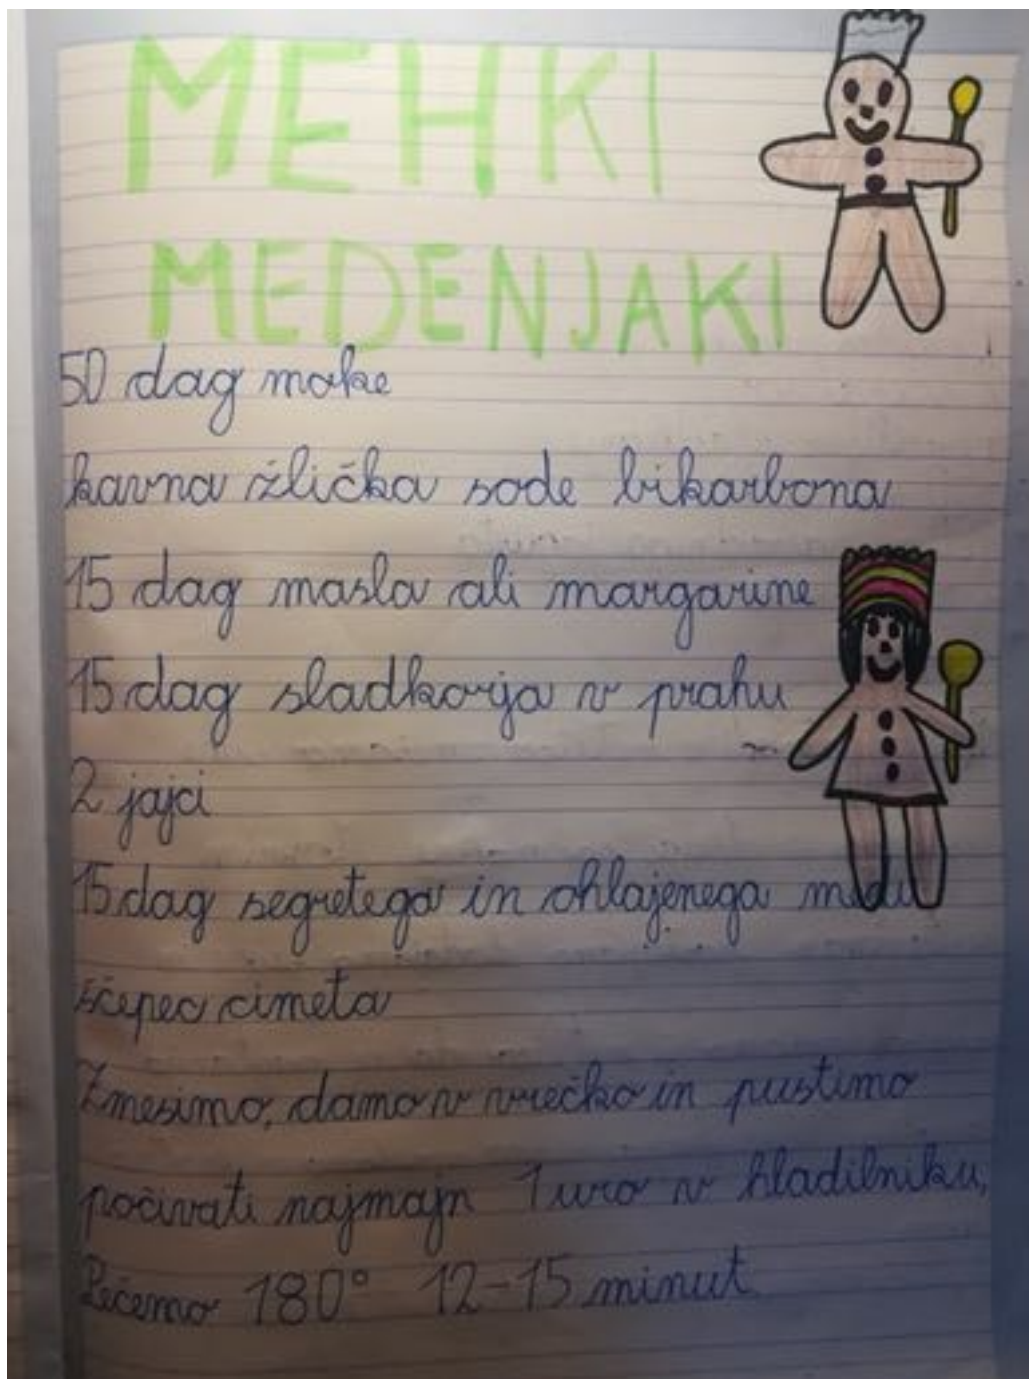 MEHKI
MEDENJAKI
50 dag moke
kavna žlička sode bikarbona
15 dag masla ali margarine
15 dag sladkorja v prahu
2 jajci
15 dag segretega in ohlajenega medu
ščepec cimeta
Zmesimo, damo v vrečko in pustimo
počivati najmajn 1 uro v hladilniku,
Pečemo 180° 12-15 minut